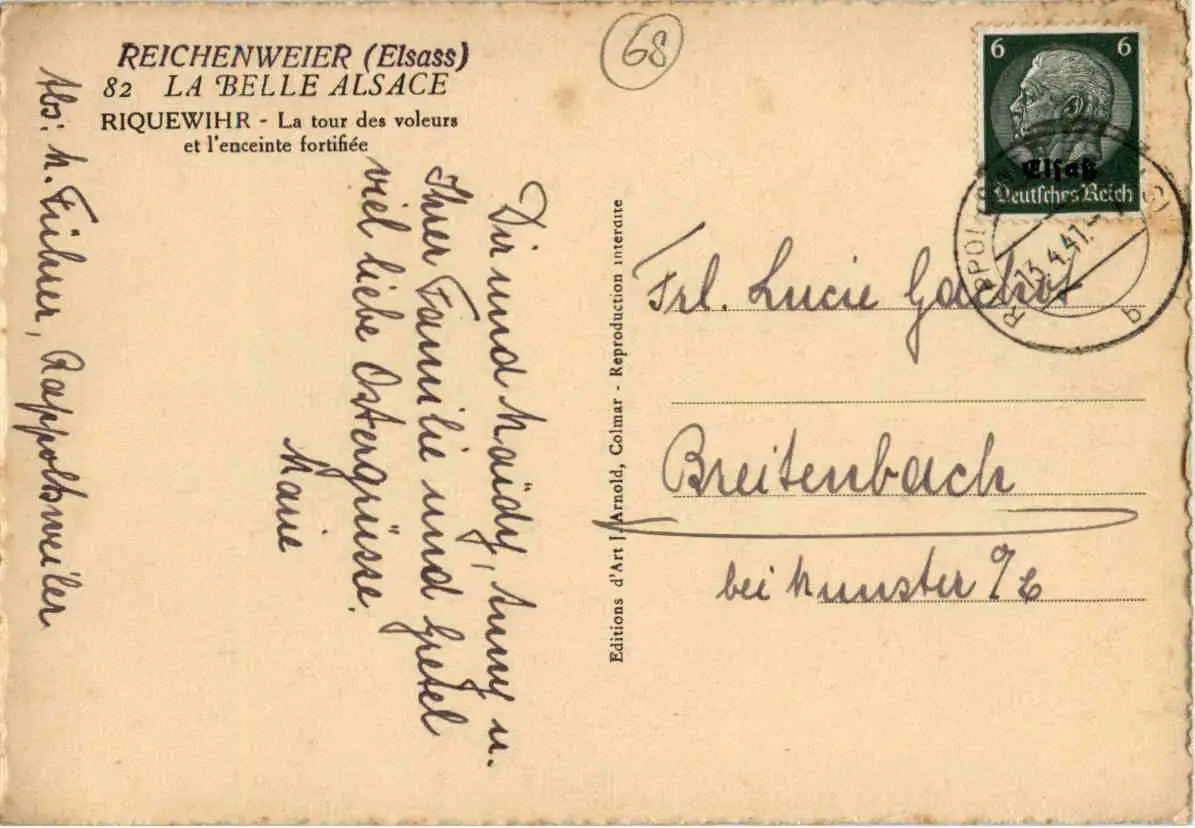 REICHENWEIER (Elsass)
82 LA BELLE ALSACE
RIQUEWIHR - La tour des voleurs
et l'enceinte fortifiée
68
6 6
Elsaß
Deutsches Reich
13.4.41.
b
Abs: M. Führer, Rappoltsweiler
Dir und Maidy, Suny u.
Ihrer Familie und Gretel
viel liebe Ostergrüsse.
Marie
Editions d'Art J. Arnold, Colmar - Reproduction interdite
Frl. Lucie Gachot
Breitenbach
bei Munster i/E